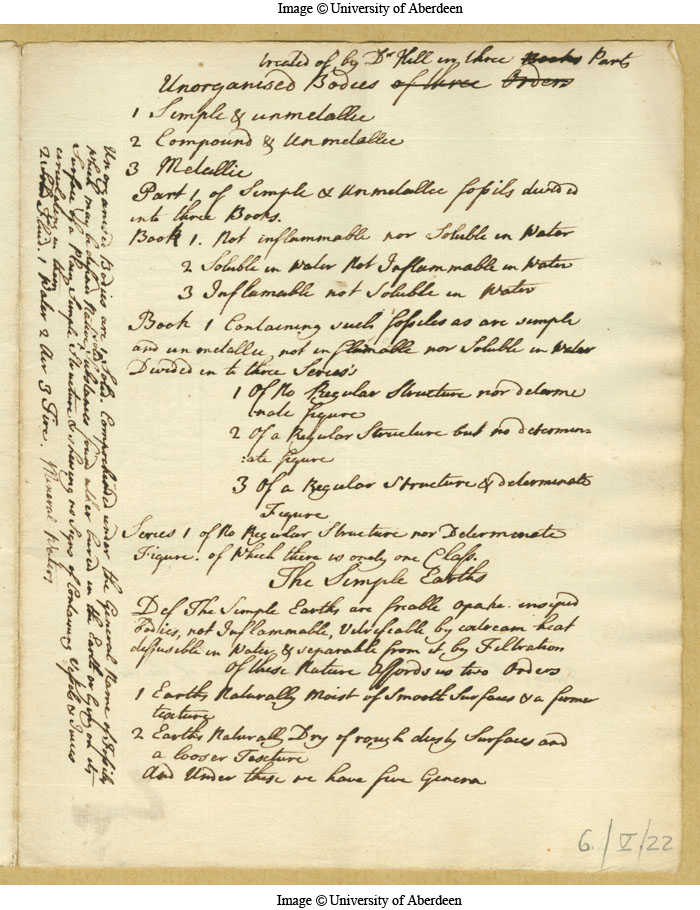 Image © University of Aberdeen
treated of by Dr Hill in three Books Parts
Unorganised Bodies of three Orders
1 Simple & unmetallic
2 Compound & Unmetallic
3 Metallic
Part 1 of Simple & Unmetallic fossils divided
into three Books.
Book 1. Not inflammable nor Soluble in Water
2 Soluble in Water Not Inflammable in Water
3 Inflamable not Soluble in Water
Book 1 Containing such fossiles as are simple
and unmetallic not inflamable nor Soluble in Water
Divided in to three Series's
1 Of No Regular Structure nor determe
nate figure
2 Of a Regular Structure but no determin=
:ate figure
3 Of a Regular Structure & determinate
Figure
Series 1 of No Regular Structure nor Determinate
Figure. of Which there is onely one Class.
The Simple Earths
Def The Simple Earths are friable opake insiped
Bodies, not Inflammable, Vitrifeable by extream heat
diffusible in Water & separable from it by Filtration
Of these Nature Affords us two Orders
1 Earths Naturally Moist of Smooth Surfaces & a firmer
texture
2 Earths Naturally Dry of rough dusty Surfaces and
a looser Texture
And Under these we have five Genera
Unorganised Bodies are 1 Solid. Comprehended under the General Name of Fossils
Which may be defined Natural Substances found either buried in the Earth or lying on its
Surface of a Plain Simple Structure & shewing no Signs of Containing Vessels or Juices
circulating in them
2 Fluid. 1 Water 2 Air 3 Fire. Mineral Waters
6./V/22
Image © University of Aberdeen